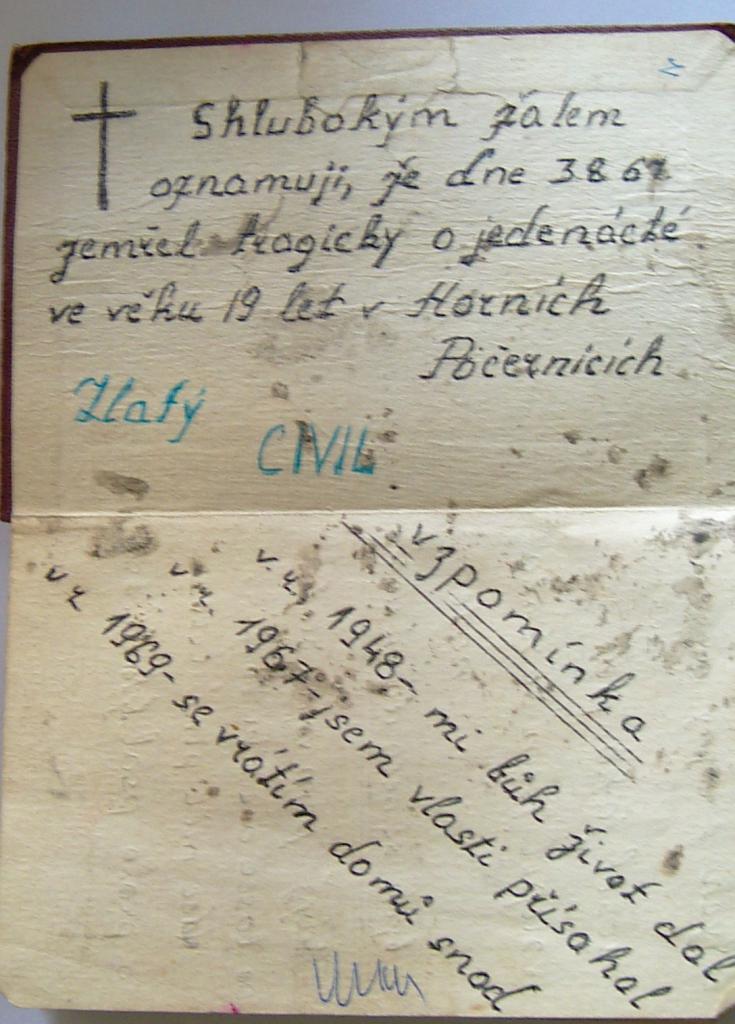 S hlubokým žálem
oznamuji, že dne 3.8.67
zemřel tragicky o jedenácté
ve věku 19 let v Horních
Počernicích
Zlatý
CIVIL
vzpomínka
v r. 1948- mi bůh život dal
v r. 1967- jsem vlasti přísahal
v r 1969- se vrátím domů snad